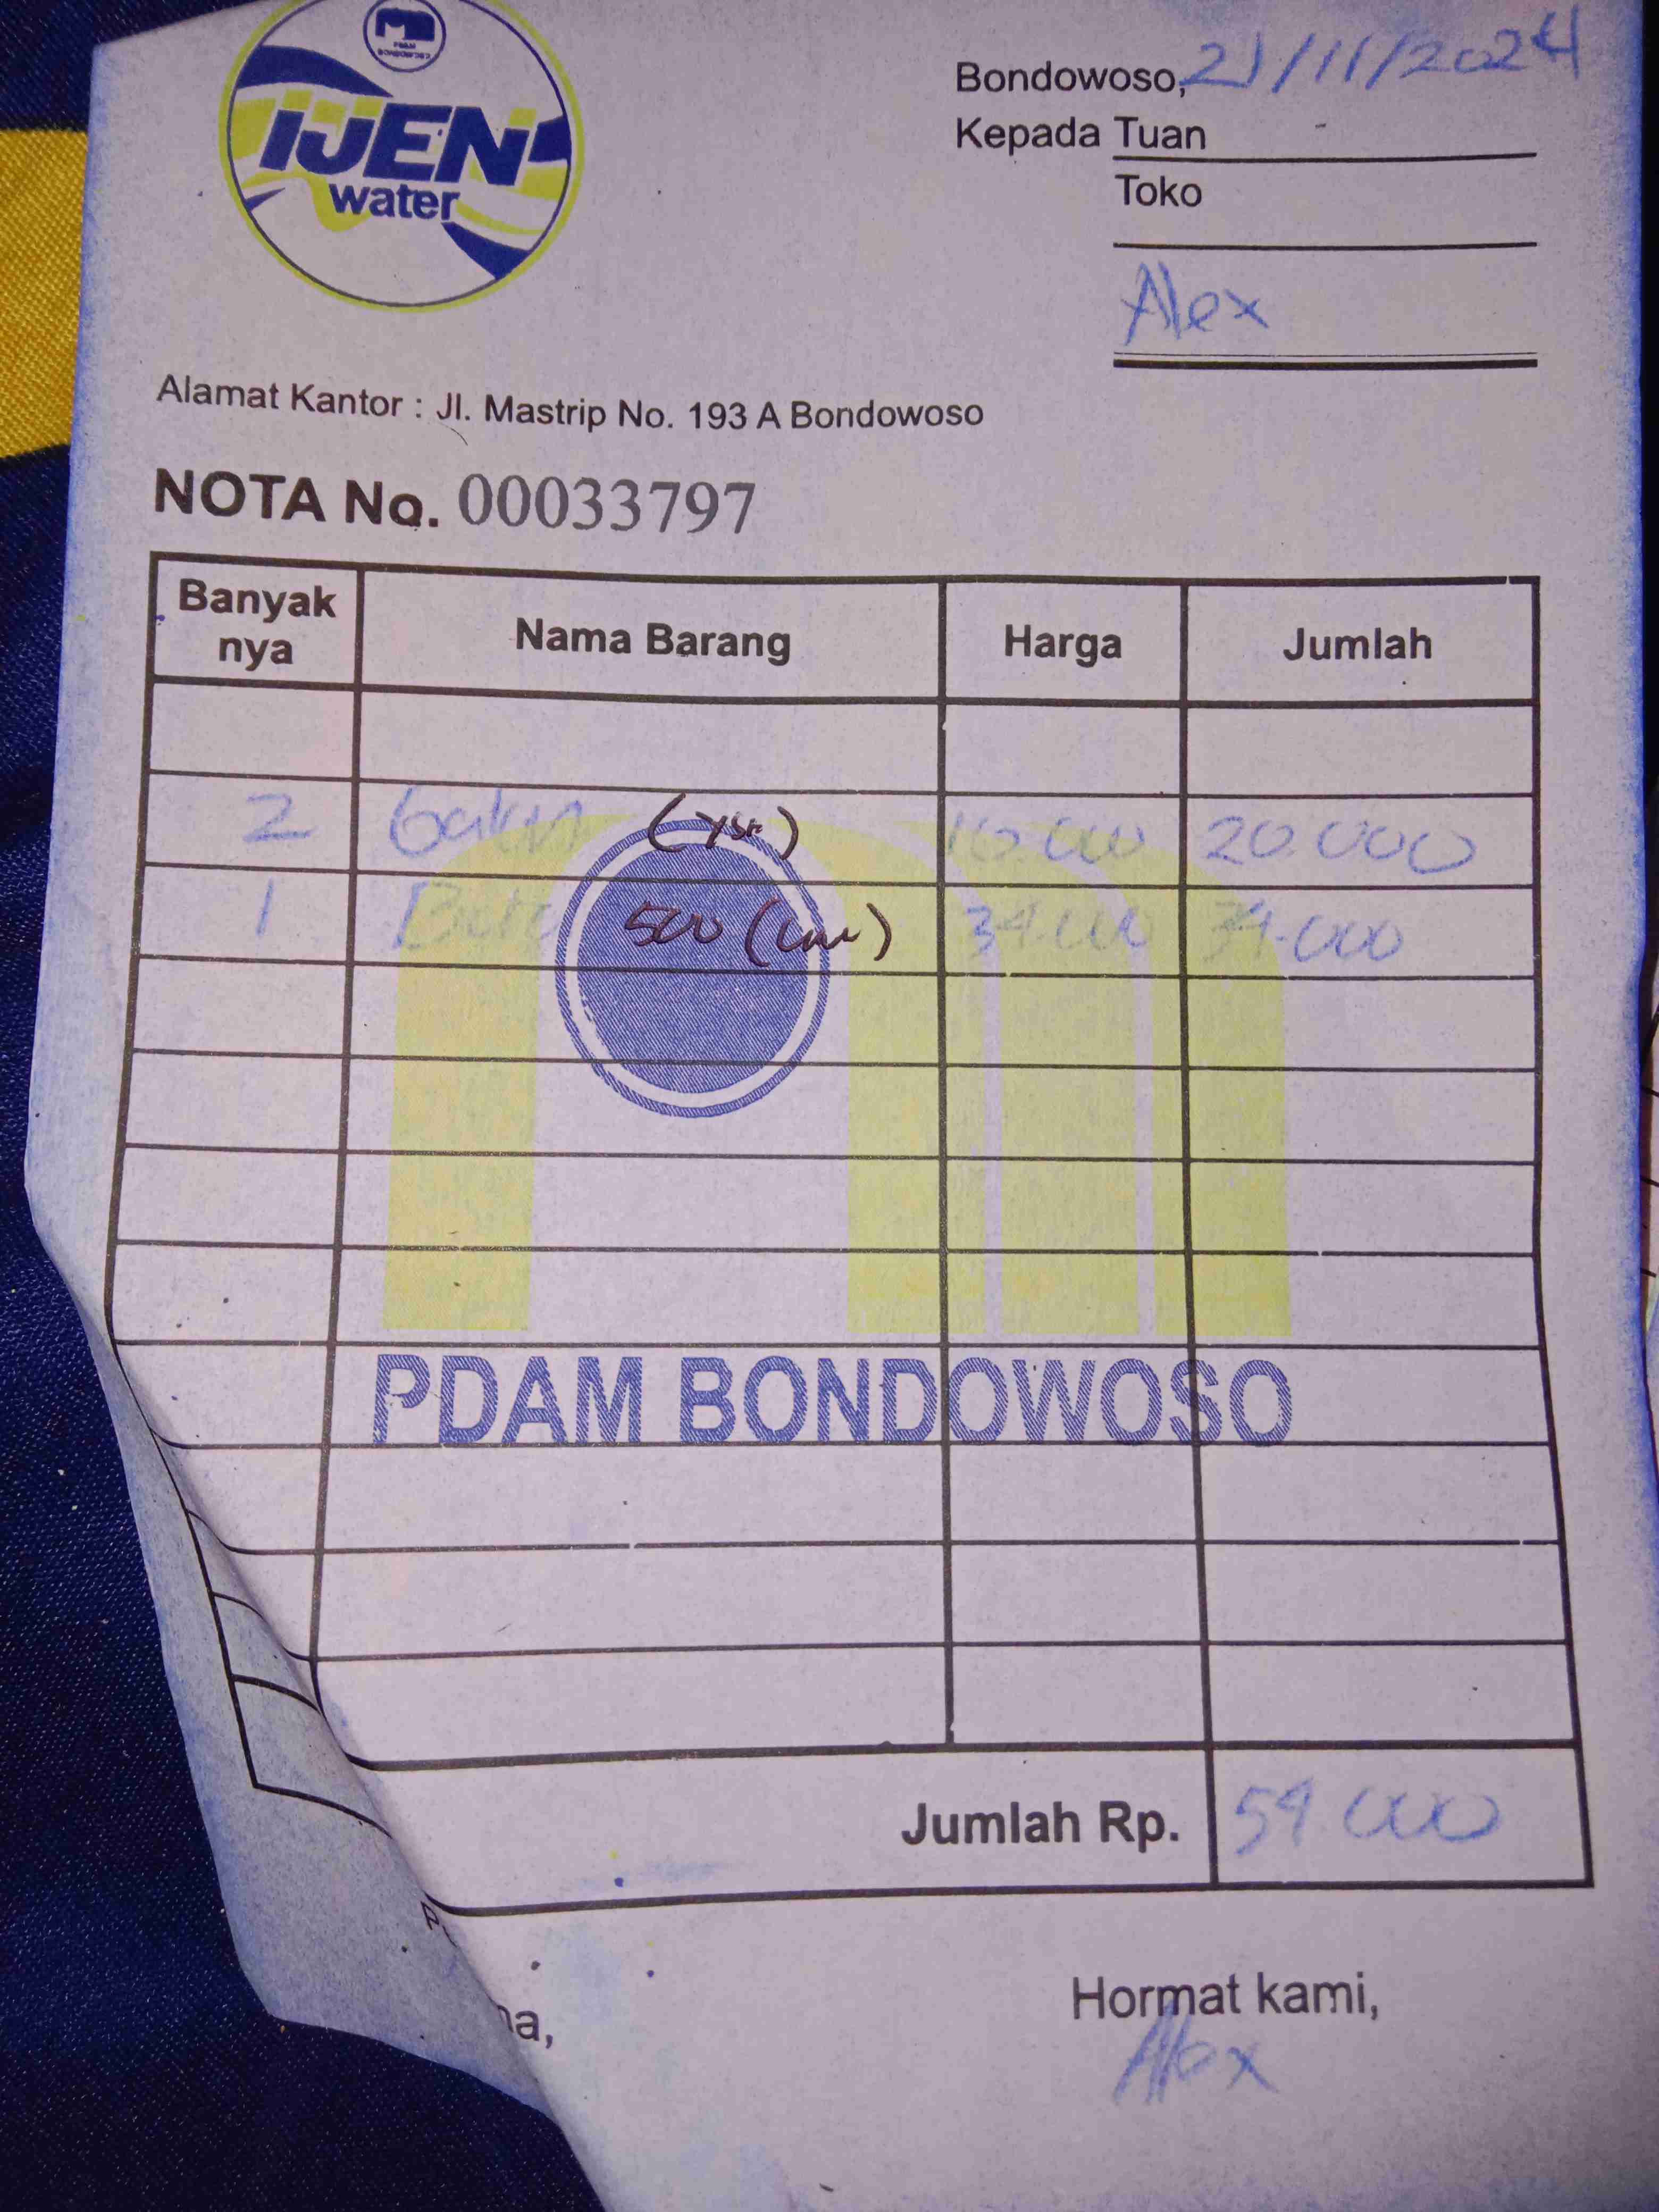 PDAM
BONDOWOSO
IJEN
water
Bondowoso, 21/11/2024
Kepada Tuan
Toko
Alex
Alamat Kantor : Jl. Mastrip No. 193 A Bondowoso
NOTA No. 00033797
Banyak nya Nama Barang Harga Jumlah
2 Galon 10.000 20.000
1 500 34.000 34.000
PDAM BONDOWOSO
Jumlah Rp. 54.000
Hormat kami,
Alex